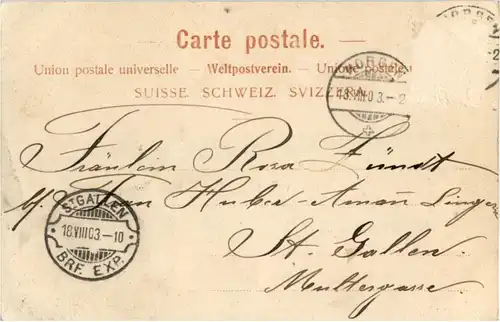 Carte postale.
Union postale universelle. — Weltpostverein. — Unione postale
SUISSE. SCHWEIZ. SVIZZERA.
HORGEN
18.VIII.03.–2
Fräulein Rosa Zündt
b/. Frau Huber-Amann Linseng
St. Gallen
Multergasse
ST GALLEN
18.VIII.03.–10
BRF. EXP.